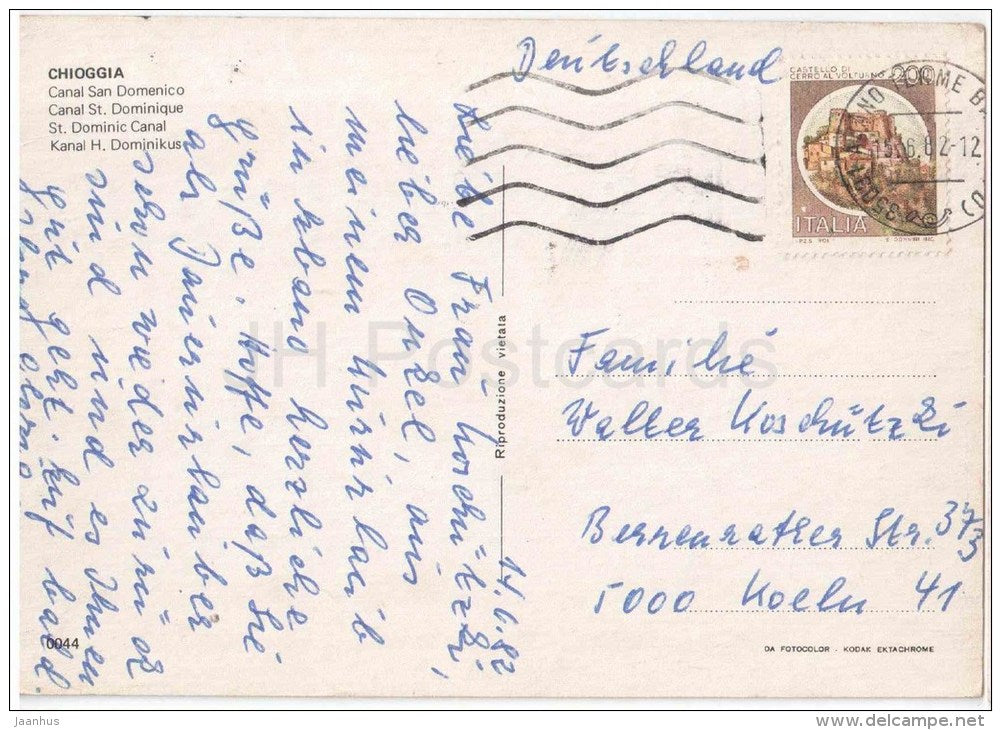 CHIOGGIA
Canal San Domenico
Canal St. Dominique
St. Dominic Canal
Kanal H. Dominikus
Deutschland
CASTELLO DI
CERRO AL VOLTURNO 200
ITALIA
15.6.82-12
14.6.82
Liebe Frau Koschützki,
lieber Onkel, aus
meinem Kurzurlaub
in Abano herzliche
Grüße. Hoffe, daß Sie
als
sehn wieder zurück
sind und es Ihnen
gut geht. Auf bald
Riproduzione vietata
Familie
Walter Koschützki
Berrenrather Str. 373
5000 Koeln 41
0044
DA FOTOCOLOR - KODAK EKTACHROME
IH Postcards
Jaanhus
www.delcampe.net